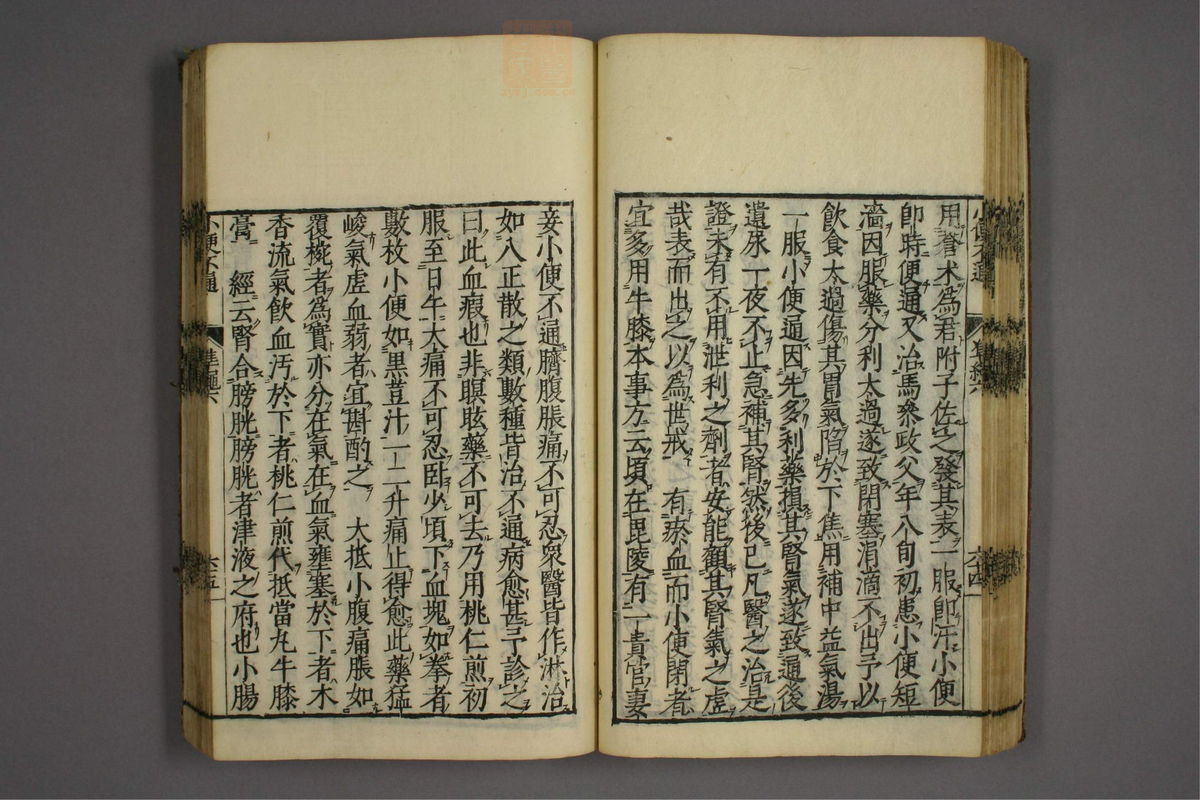 用蒼术為君附子佐之發其表一服即汗小便
即時便通又治馬參政父年八旬初患小便短
濇因服藥分利太過遂致閉塞涓滴不出予以
飲食太過傷其胃氣陷於下焦用補中益氣湯
一服小便通因先多利藥損其腎氣遂致通後
遺尿一夜不止急補其腎然後已凡醫之治是
證未有不用泄利之劑者安能顧其腎氣之虛
哉表而出之以為世戒　有瘀血而小便閉者
宜多用牛膝本事方云頃在毘陵有一貴官妻
小便不通
準繩六
六十四
妾小便不通臍腹脹痛不可忍衆醫皆作淋治
如八正散之類數種皆治不通病愈甚予診之
曰此血瘕也非瞑眩藥不可去乃用桃仁煎初
服至日午大痛不可忍臥少頃下血塊如拳者
數枚小便如黒荳汁一二升痛止得愈此藥猛
峻氣虛血弱者宜斟酌之　大抵小腹痛脹如
覆椀者為實亦分在氣在血氣壅塞於下者木
香流氣飲血汚於下者桃仁煎代抵當丸牛膝
膏　經云腎合膀胱膀胱者津液之府也小腸
小便不通
準繩六
六十五